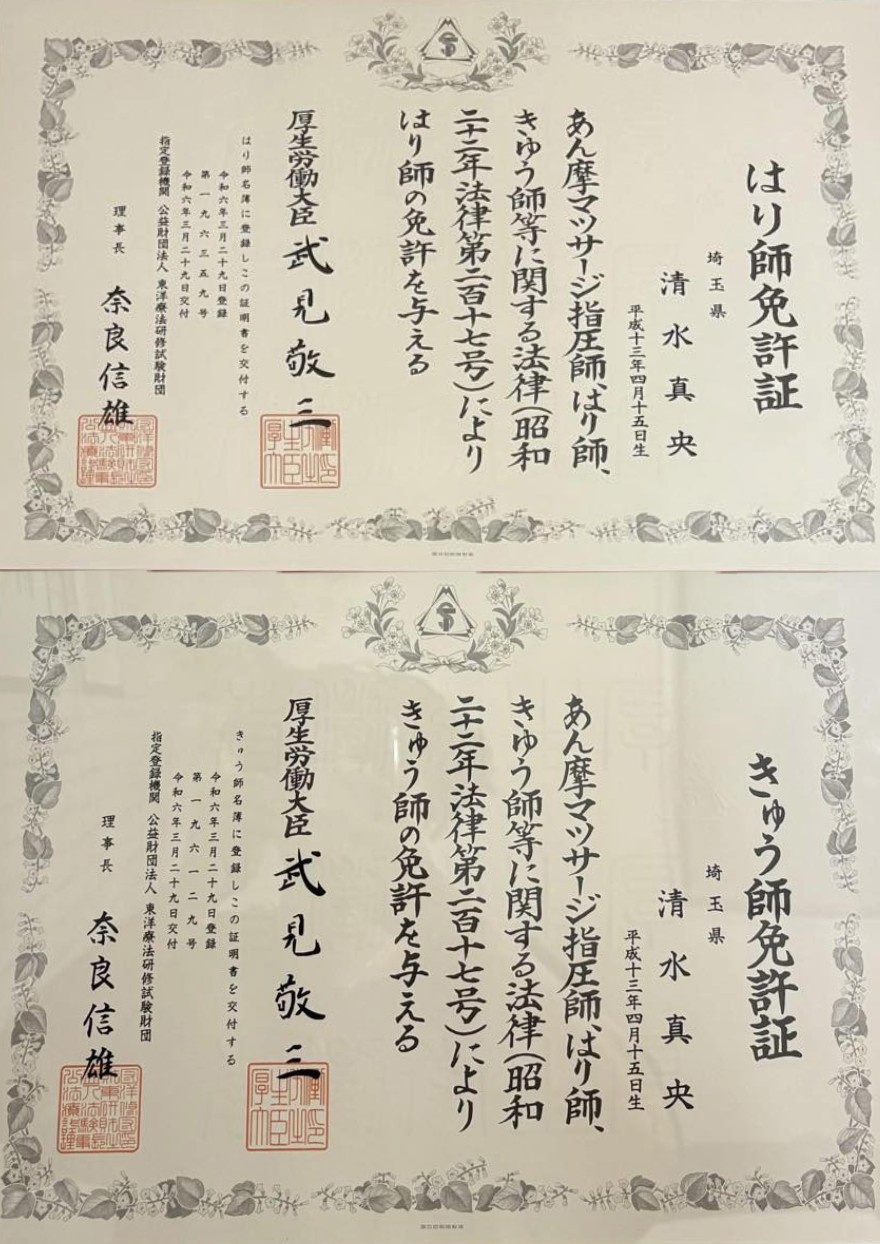 はり師免許証
埼玉県
清水真央
平成十三年四月十五日生
あん摩マツサージ指圧師、はり師、
きゆう師等に関する法律(昭和
二十二年法律第二百十七号)により
はり師の免許を与える
厚生労働大臣 武見敬三
はり師名簿に登録しこの証明書を交付する
令和六年三月二十九日登録
第一九六三五九号
令和六年三月二十九日交付
指定登録機関 公益財団法人 東洋療法研修試験財団
理事長 奈良信雄
きゅう師免許証
埼玉県
清水真央
平成十三年四月十五日生
あん摩マツサージ指圧師、はり師、
きゆう師等に関する法律(昭和
二十二年法律第二百十七号)により
きゅう師の免許を与える
厚生労働大臣 武見敬三
きゅう師名簿に登録しこの証明書を交付する
令和六年三月二十九日登録
第一九六一二九号
令和六年三月二十九日交付
指定登録機関 公益財団法人 東洋療法研修試験財団
理事長 奈良信雄